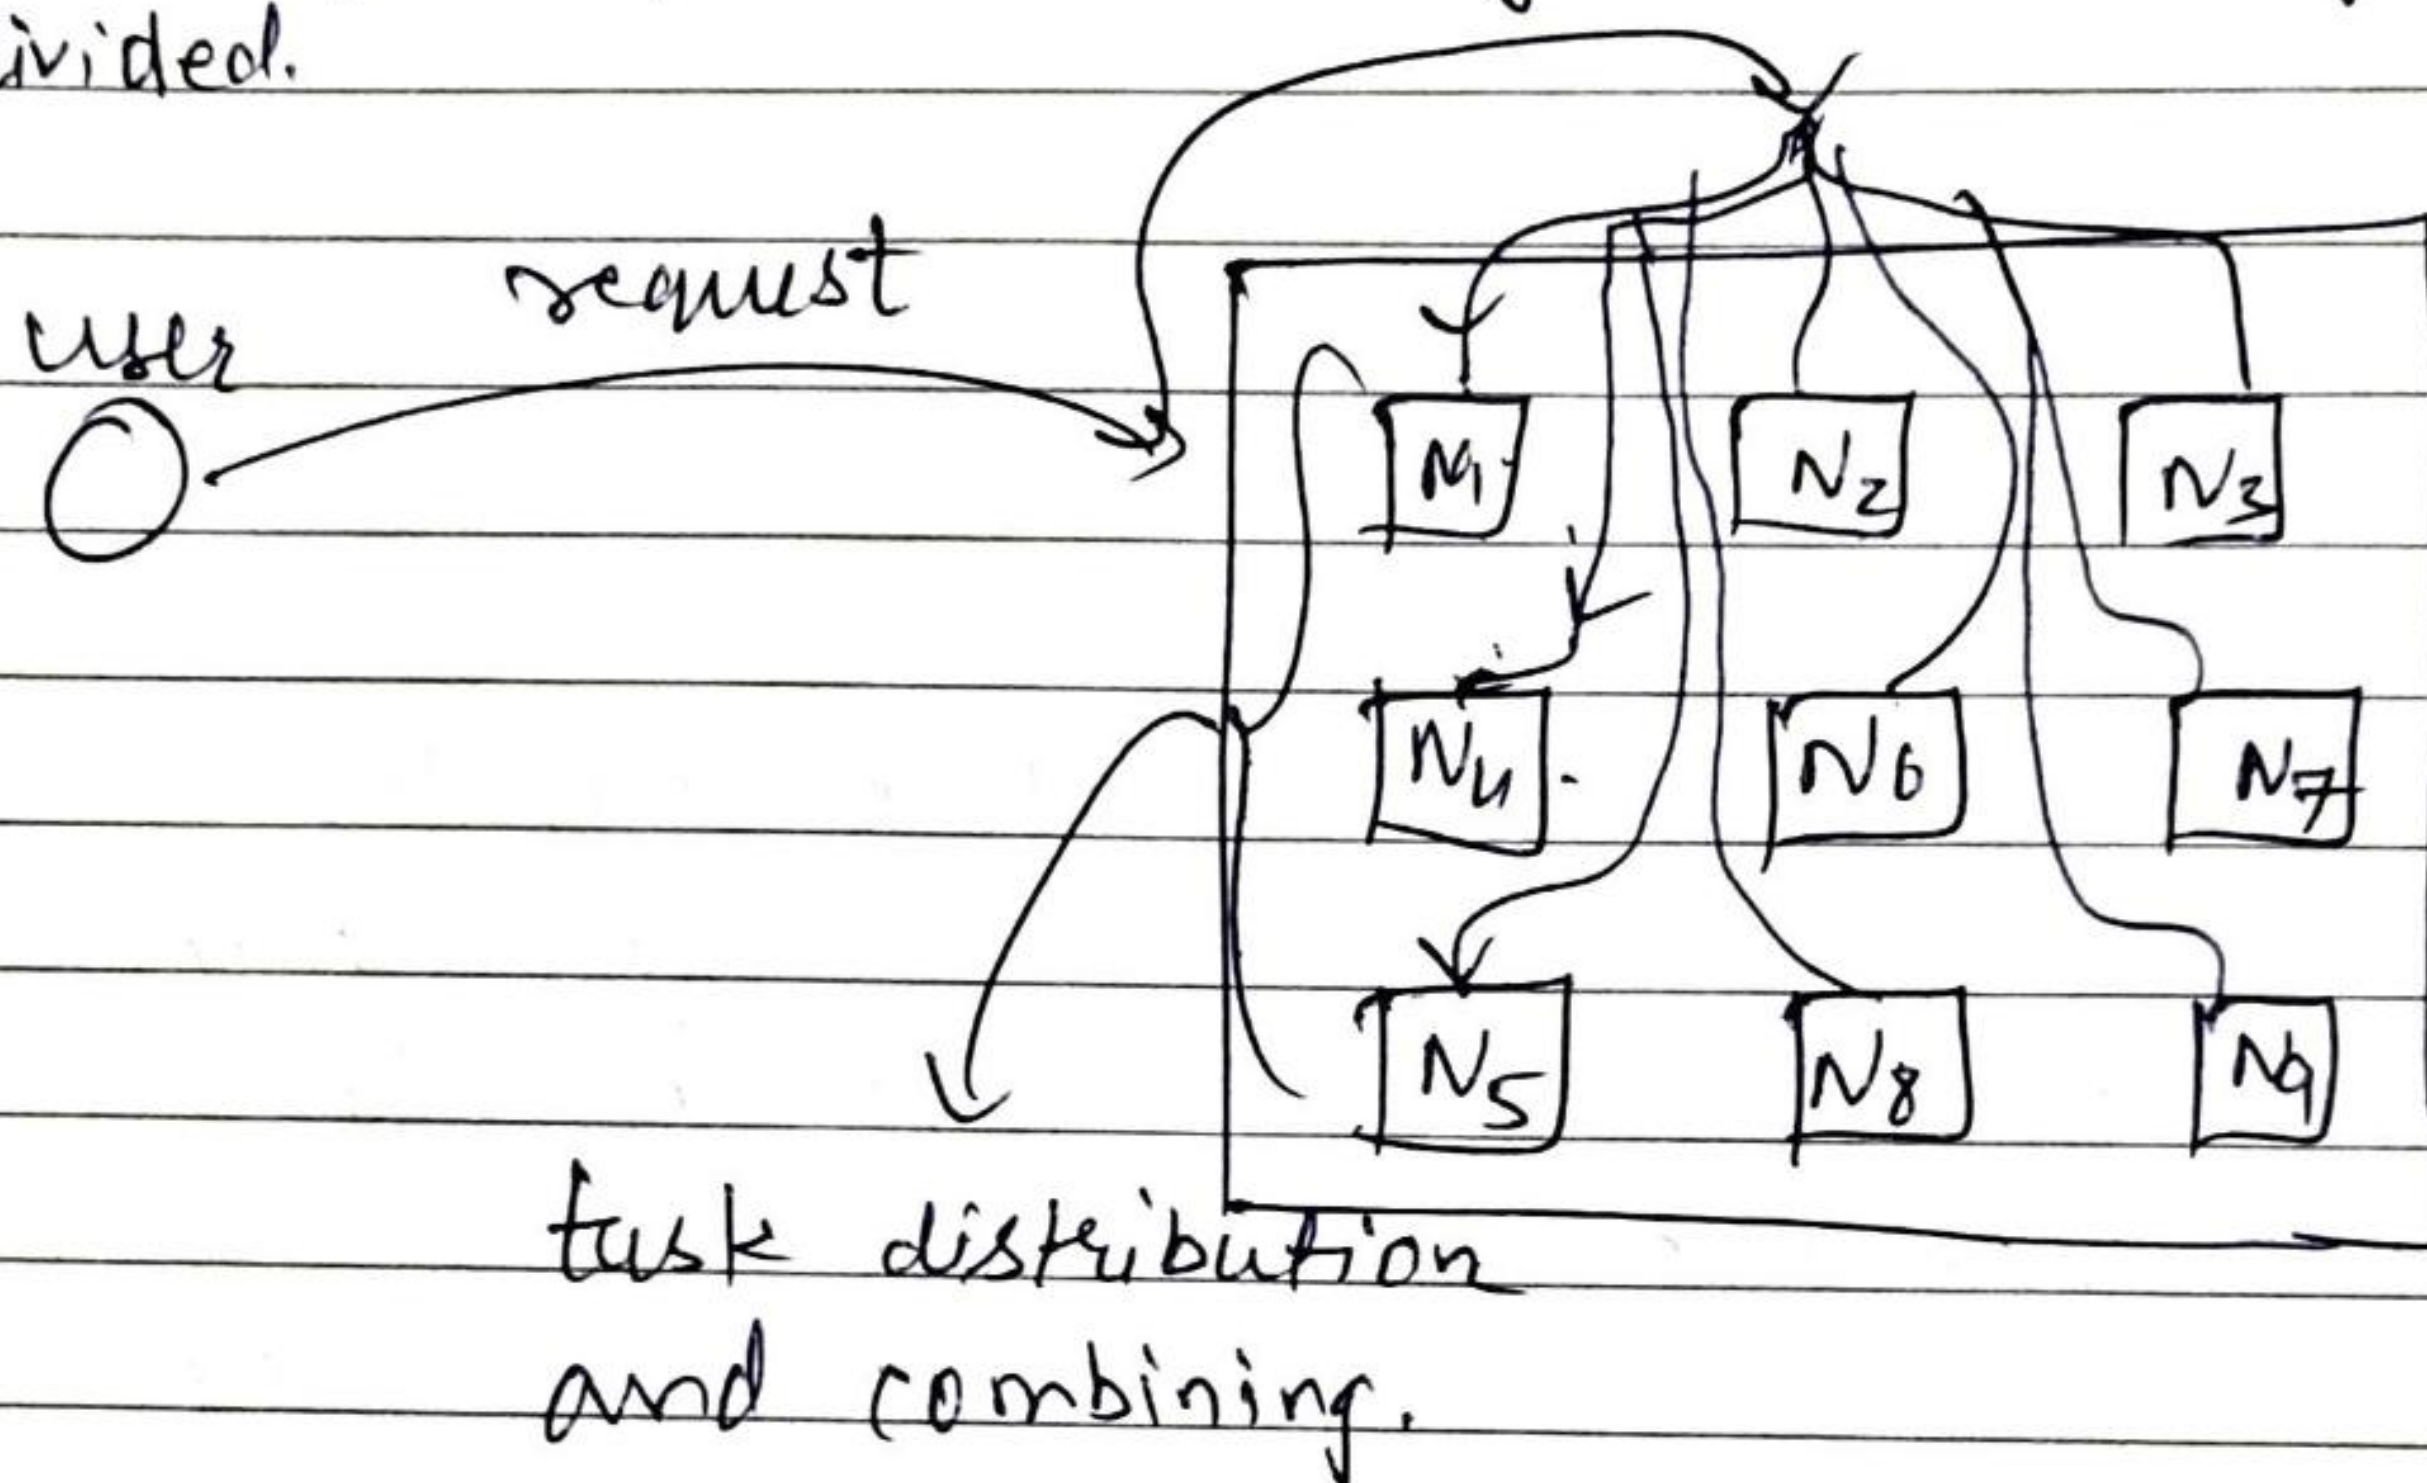 ivided.
request
user
N1 N2 N3
N4 N6 N7
N5 N8 N9
task distribution
and combining.